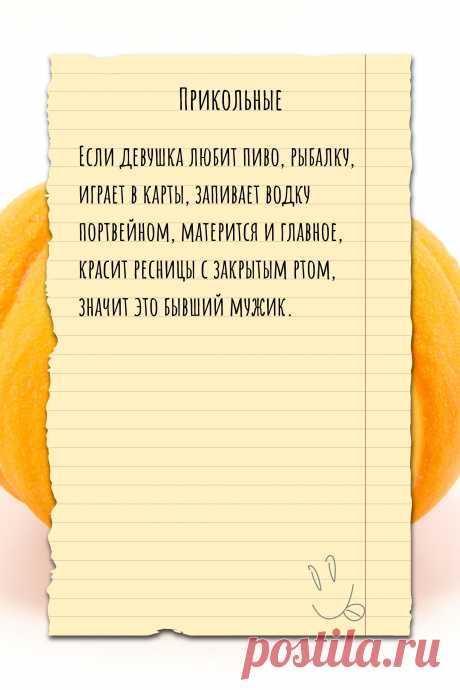 Прикольные
Если девушка любит пиво, рыбалку,
играет в карты, запивает водку
портвейном, матерится и главное,
красит ресницы с закрытым ртом,
значит это бывший мужик.
postila.ru